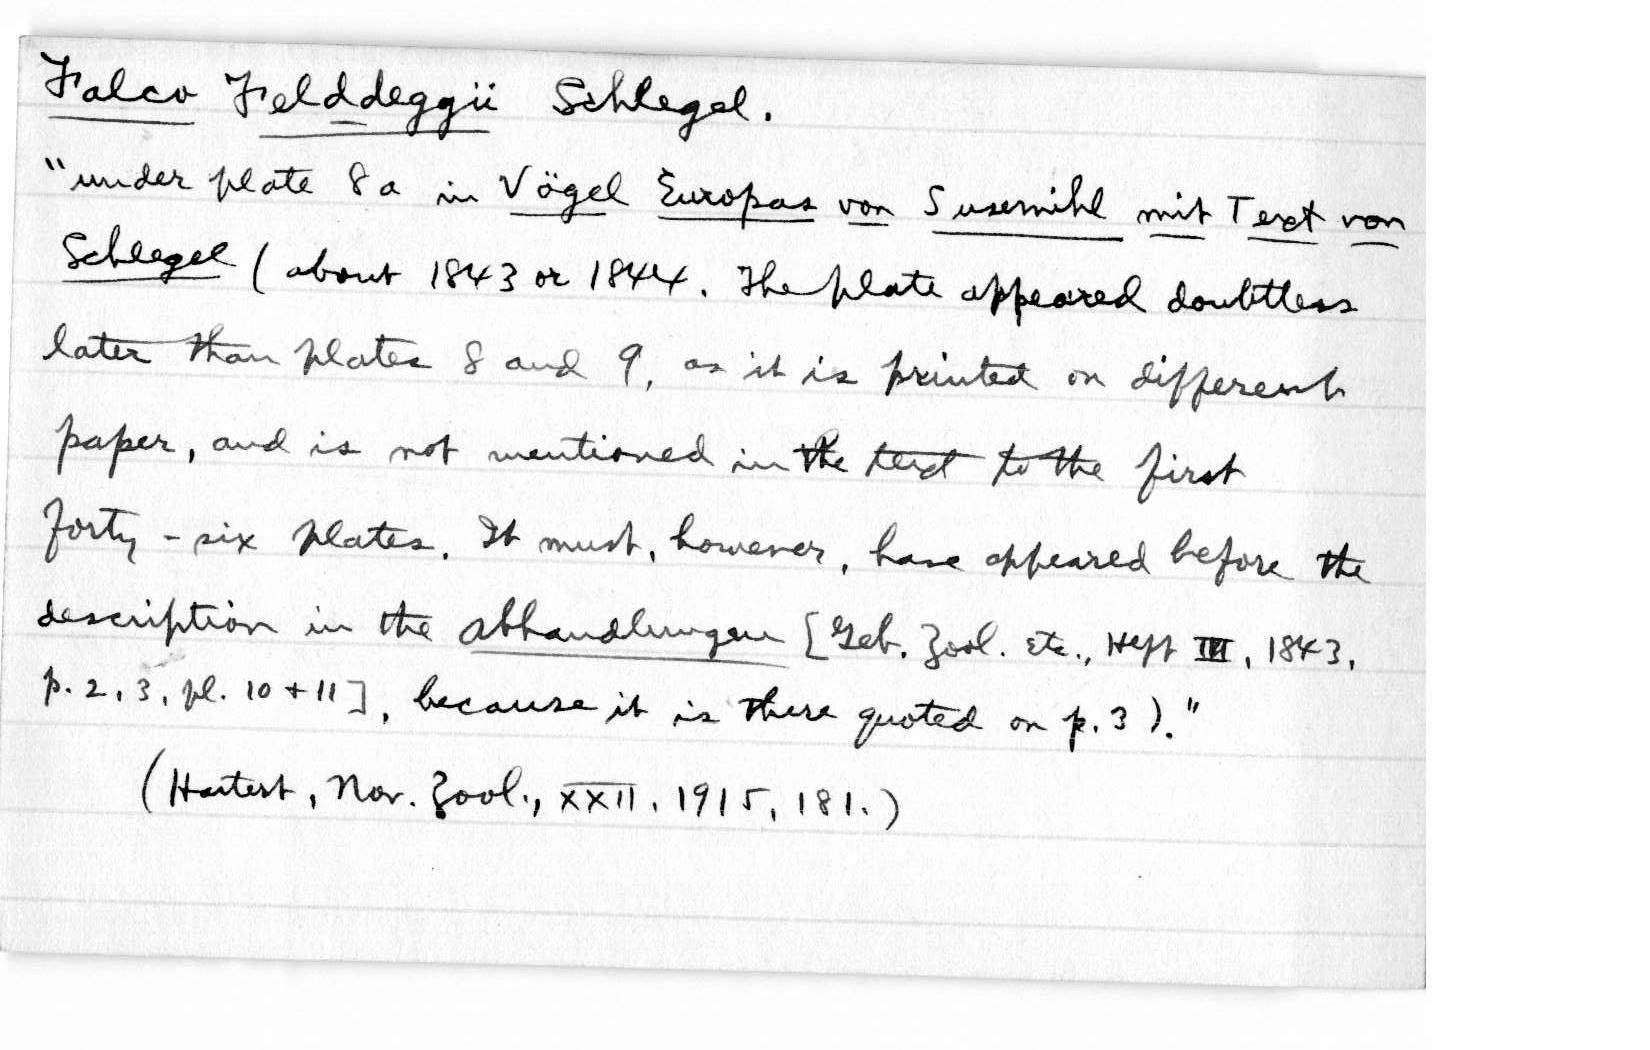 Falco Felddeggii Schlegel.
"under plate 8a in Vögel Europas von Susemihl mit Text von
Schlegel (about 1843 or 1844. The plate appeared doubtless
later than plates 8 and 9, as it is printed on different
paper, and is not mentioned in the text to the first
forty-six plates. It must, however, have appeared before the
description in the Abhandlungen [Geb. Zool. etc., Heft III, 1843,
p. 2, 3, pl. 10 + 11], because it is there quoted on p. 3)."
(Hartert, Nov. Zool., XXII, 1915, 181.)